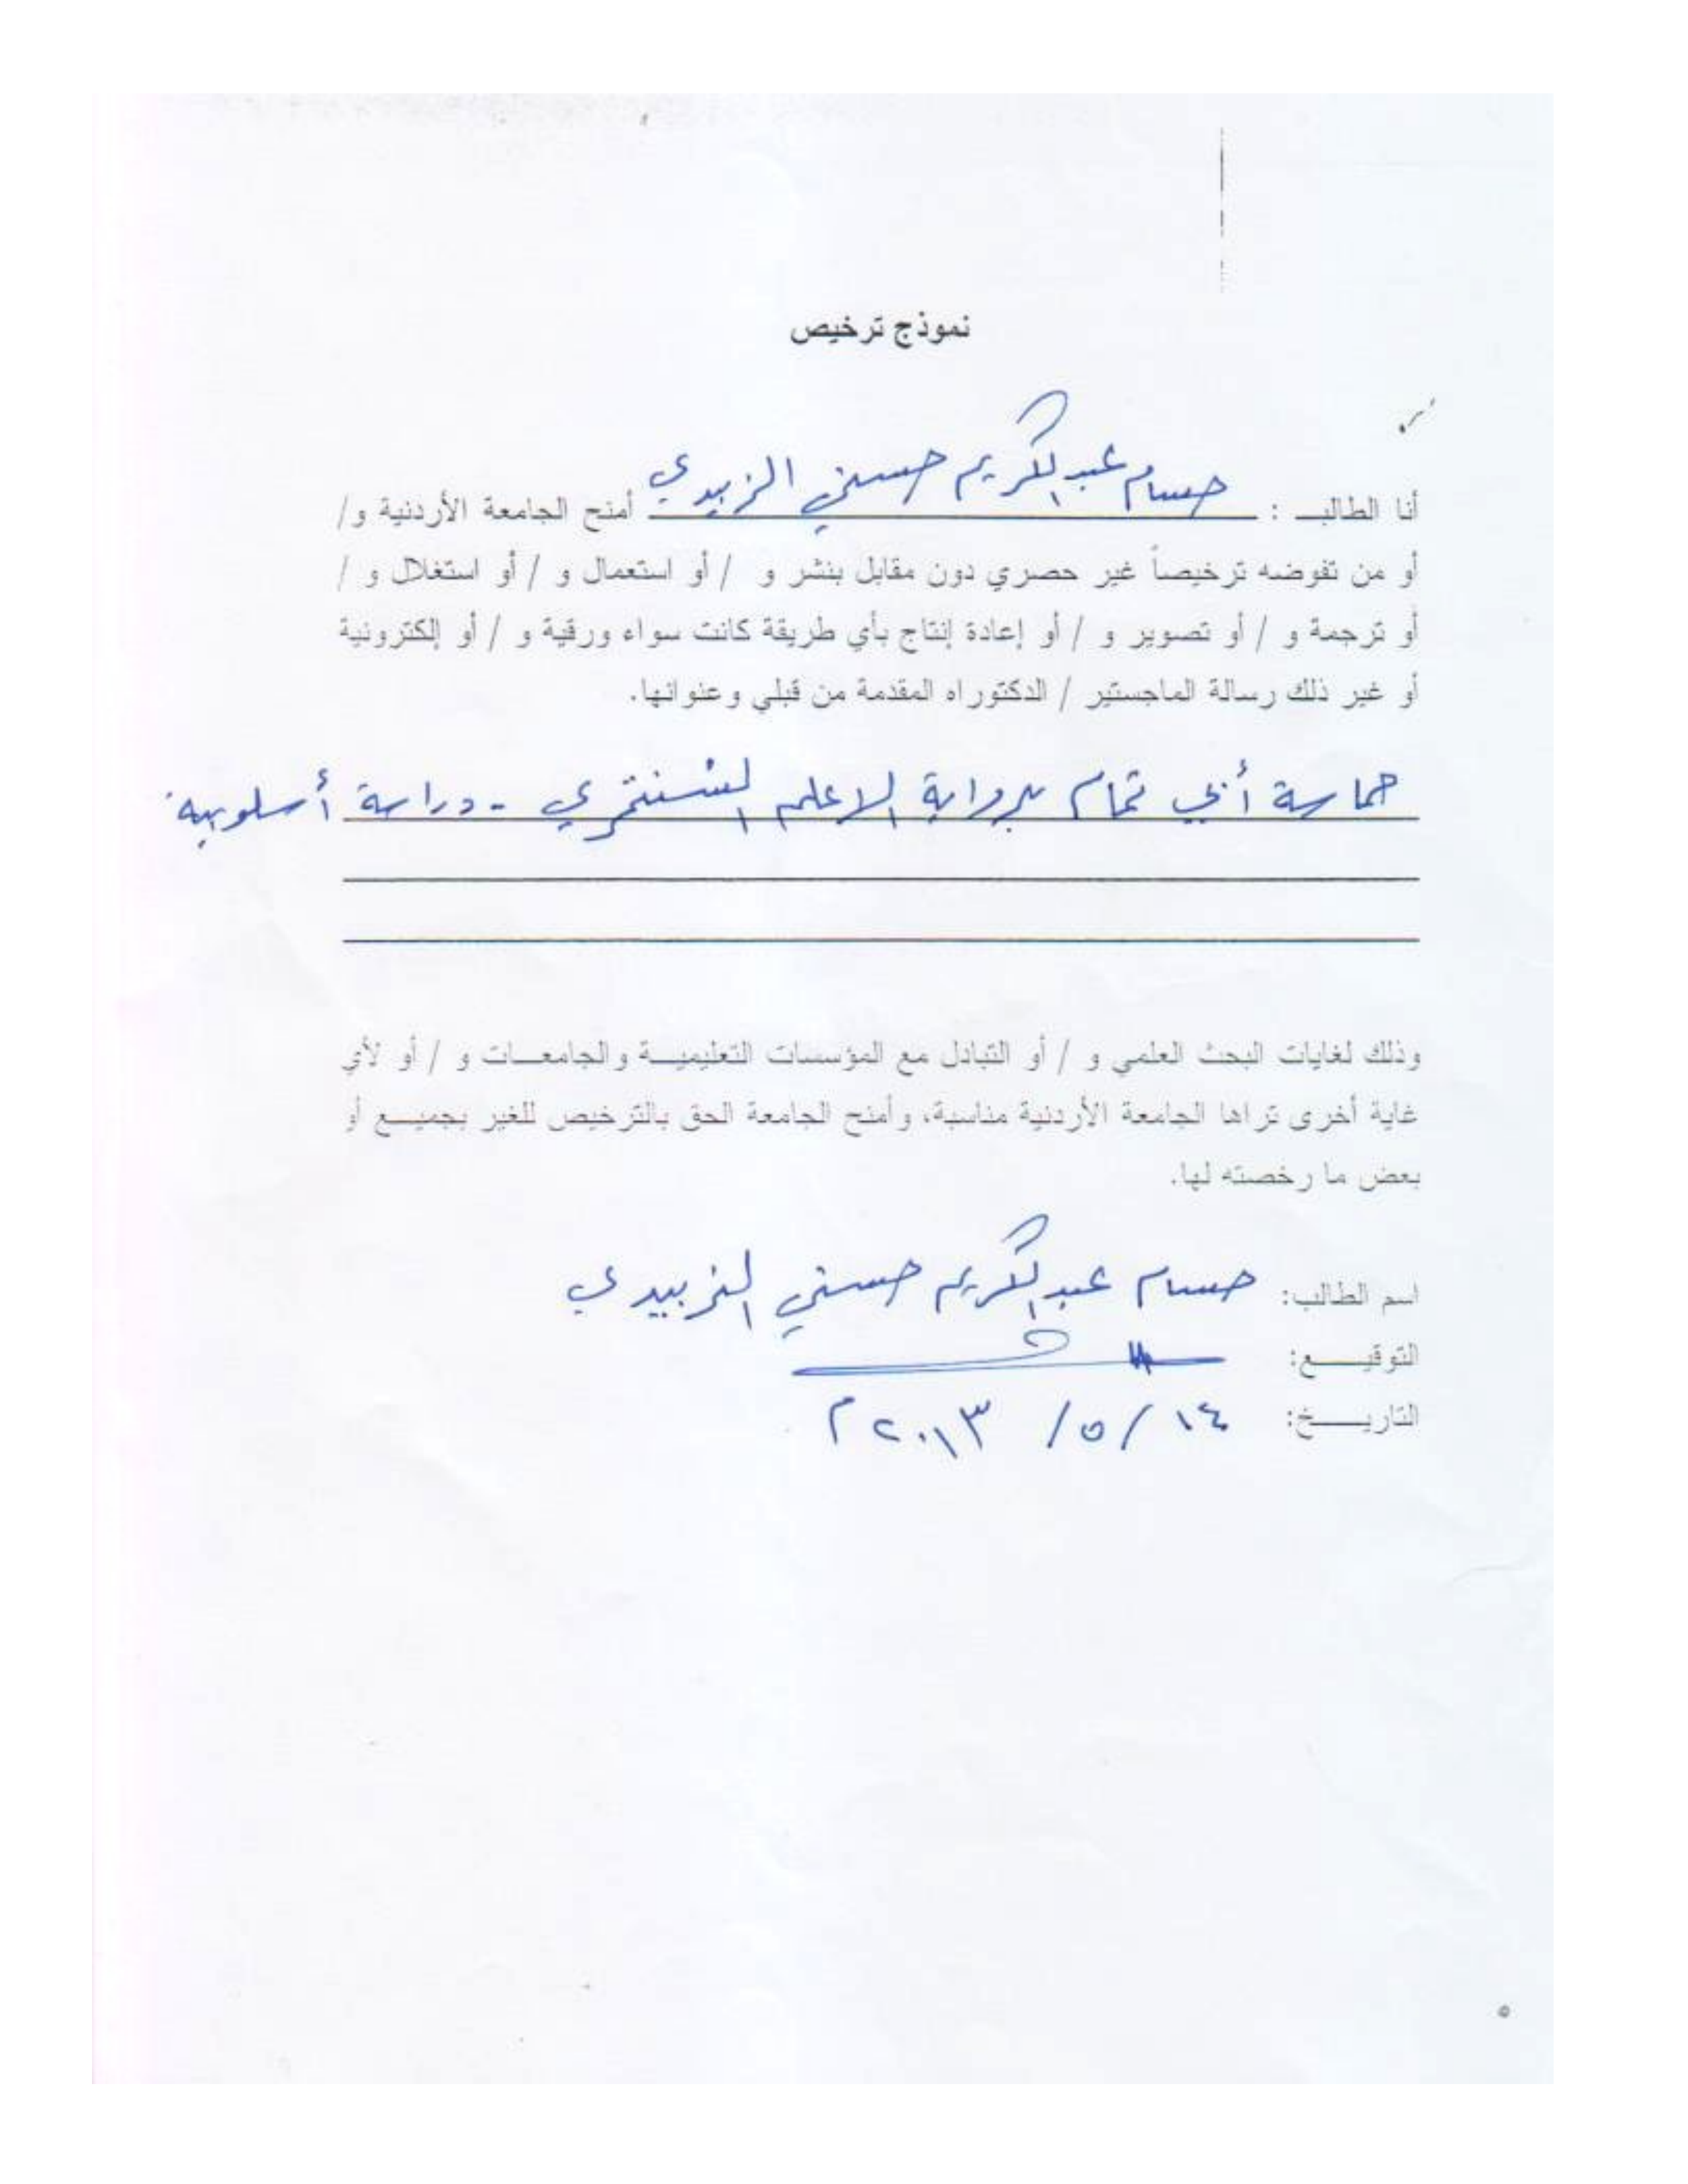 نموذج ترخيص
أنا الطالب : حسام عبد الكريم حسني الزبيدي أمنح الجامعة الأردنية و/
أو من تفوضه ترخيصاً غير حصري دون مقابل بنشر و / أو استعمال و / أو استغلال و /
أو ترجمة و / أو تصوير و / أو إعادة إنتاج بأي طريقة كانت سواء ورقية و / أو إلكترونية
أو غير ذلك رسالة الماجستير / الدكتوراه المقدمة من قبلي وعنوانها.
حماسة أبي تمام برواية الاعلم الشنتمري - دراسة أسلوبية.
وذلك لغايات البحث العلمي و / أو التبادل مع المؤسسات التعليمية والجامعات و / أو لأي
غاية أخرى تراها الجامعة الأردنية مناسبة، وأمنح الجامعة الحق بالترخيص للغير بجميع أو
بعض ما رخصته لها.
اسم الطالب: حسام عبد الكريم حسني الزبيدي
التوقيع:
التاريخ: ١٤ / ٥ / ٢٠١٣ م
٥